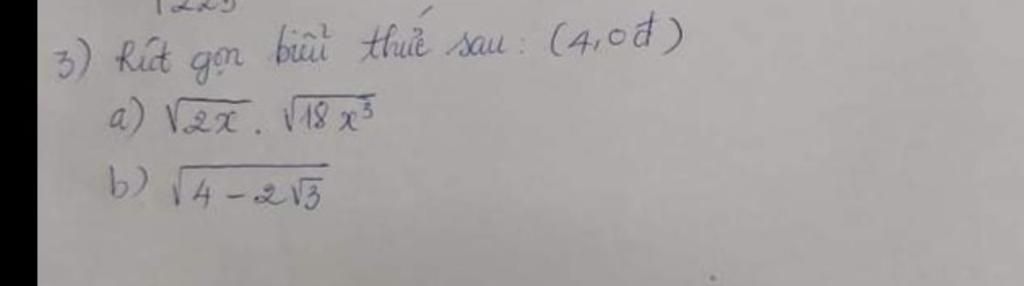 3) Rút gọn biểu thức sau: (4,0đ)
a) √2x . √18x³
b) √4 - 2√3